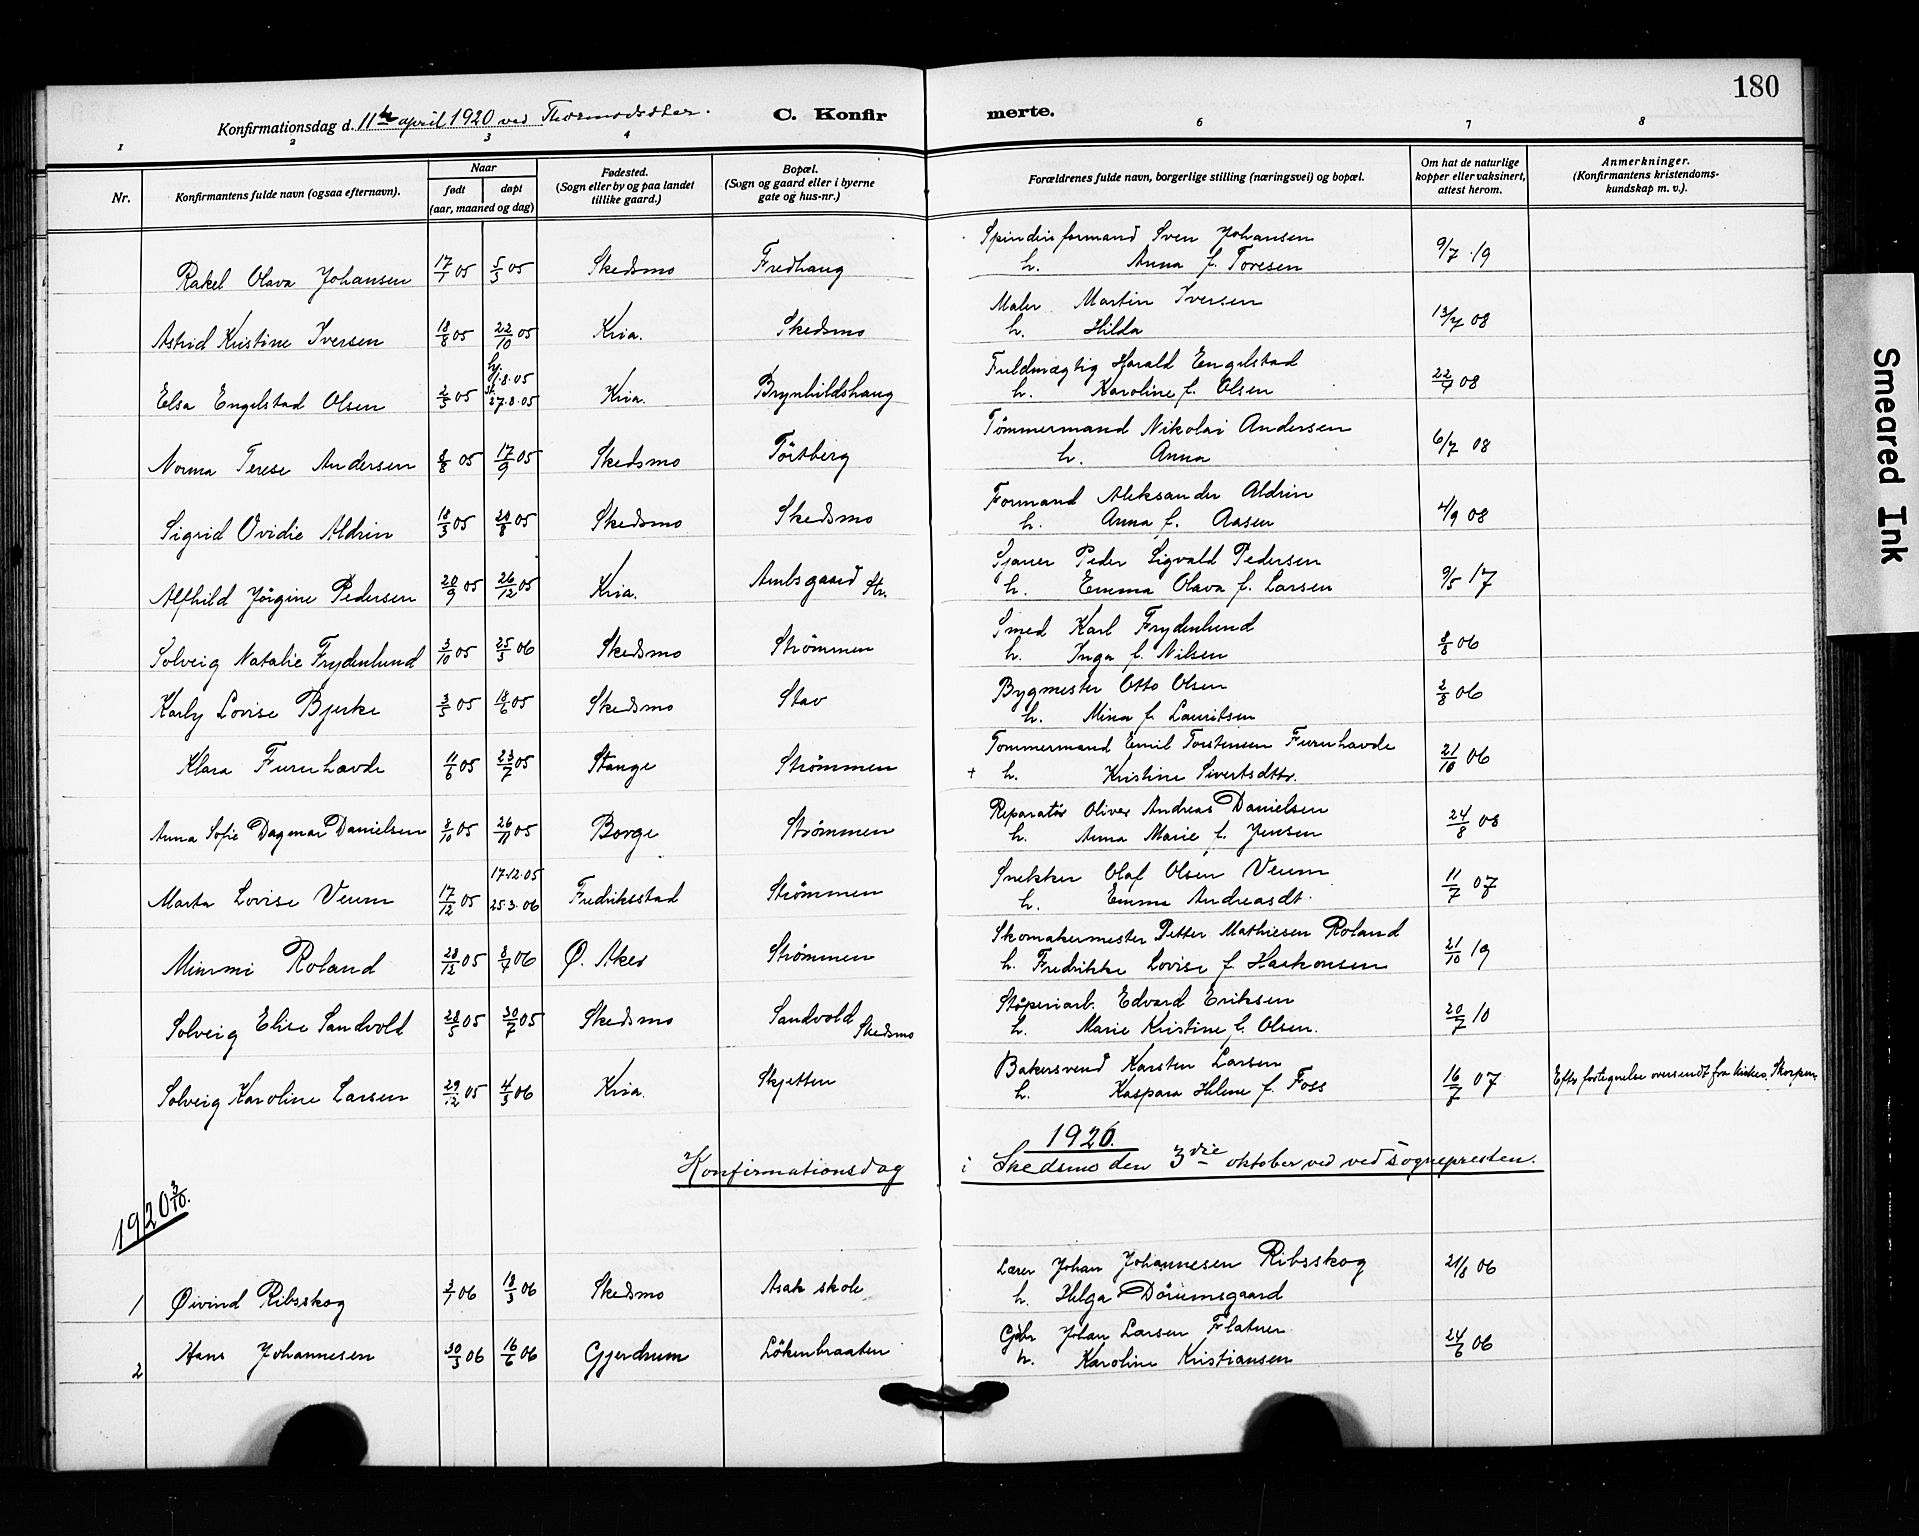 180
Konfirmationsdag d. 11te april 1920 ved Thormodsæter. C. Konfir merte.
1 2 3 4 6 7 8
Nr. Konfirmantens fulde navn (ogsaa efternavn). Naar født døpt (aar, maaned og dag) Fødested. (Sogn eller by og paa landet tillike gaard.) Bopæl. (Sogn og gaard eller i byerne gate og hus-nr.) Forældrenes fulde navn, borgerlige stilling (næringsvei) og bopæl. Om hat de naturlige kopper eller vaksinert, attest herom. Anmerkninger. (Konfirmantens kristendoms-kundskap m. v.).
Rakel Olava Johansen 17/1 05 5/3 05 Skedsmo Fredhaug Spinderiformand Sven Johansen 9/7 19
h. Anna f. Toresen
Astrid Kristine Iversen 18/8 05 22/10 05 Kria. Skedsmo Maler Martin Iversen 13/7 08
h. Hilda
Elsa Engelstad Olsen 2/3 05 hj. 8.05 st. 27.8.05 Kria. Brynhildshaug Fuldmægtig Harald Engelstad 22/9 08
h. Karoline f. Olsen
Norma Terese Andersen 8/8 05 17/9 05 Skedsmo Törtberg Tömmermand Nikolai Andersen 6/7 08
h. Anna
Sigrid Ovidie Aldrin 18/3 05 20/8 05 Skedsmo Skedsmo Formand Aleksander Aldrin 4/9 08
h. Anna f. Aasen
Alfhild Jörgine Pedersen 20/9 05 26/12 05 Kria. Amtsgaard Str. Sjauer Peder Sigvald Pedersen 9/5 17
h. Emma Olava f. Larsen
Solveig Natalie Frydenlund 3/10 05 25/3 06 Skedsmo Strömmen Smed Karl Frydenlund 8/8 06
h. Inga f. Nilsen
Karly Lovise Bjerke 3/5 05 18/6 05 Skedsmo Stav Bygmester Otto Olsen 3/8 06
h. Mina f. Lauritsen
Klara Furuhavde 11/6 05 23/7 05 Stange Strömmen Tommermand Emil Torstensen Furuhavde 21/10 06
+ h. Kristine Sivertsdttr.
Anna Sofie Dagmar Danielsen 8/10 05 26/11 05 Borge Strömmen Reparatör Oliver Andreas Danielsen 24/8 08
h. Anna Marie f. Jensen
Marta Lovise Veum 17/12 05 17.12.05 25.3.06 Fredriksstad Strömmen Snekker Olaf Olsen Veum 11/7 07
h. Emma Andreasdt.
Mimmi Roland 28/12 05 8/4 06 Ø. Aker Strömmen Skomakermester Petter Mathiesen Roland 21/10 19
h. Fredrikke Lovise f. Haakonsen
Solveig Elise Sandvold 28/5 05 30/7 05 Skedsmo Sandvold Skedsmo Stöperiarb. Edvard Eriksen 20/7 10
h. Marie Kristine f. Olsen.
Solveig Karoline Larsen 29/12 05 4/3 06 Kria. Skjetten Bakersvend Karsten Larsen 16/8 07 Efter fortegnelse oversendt fra
h. Kaspara Helene f. Foss
1920.
Konfirmationsdag i Skedsmo den 3die oktober ved ved sognepresten.
1920 3/10.
1 Øivind Ribsskog 3/1 06 18/3 06 Skedsmo Asak skole Lærer Johan Johannesen Ribsskog 21/8 06
h. Helga Dörumsgaard
2 Hans Johannesen 30/3 06 16/6 06 Gjerdrum Lökenbraaten Gbr Johan Larsen Flatner 24/6 06
h. Karoline Kristiansen
Smeared Ink